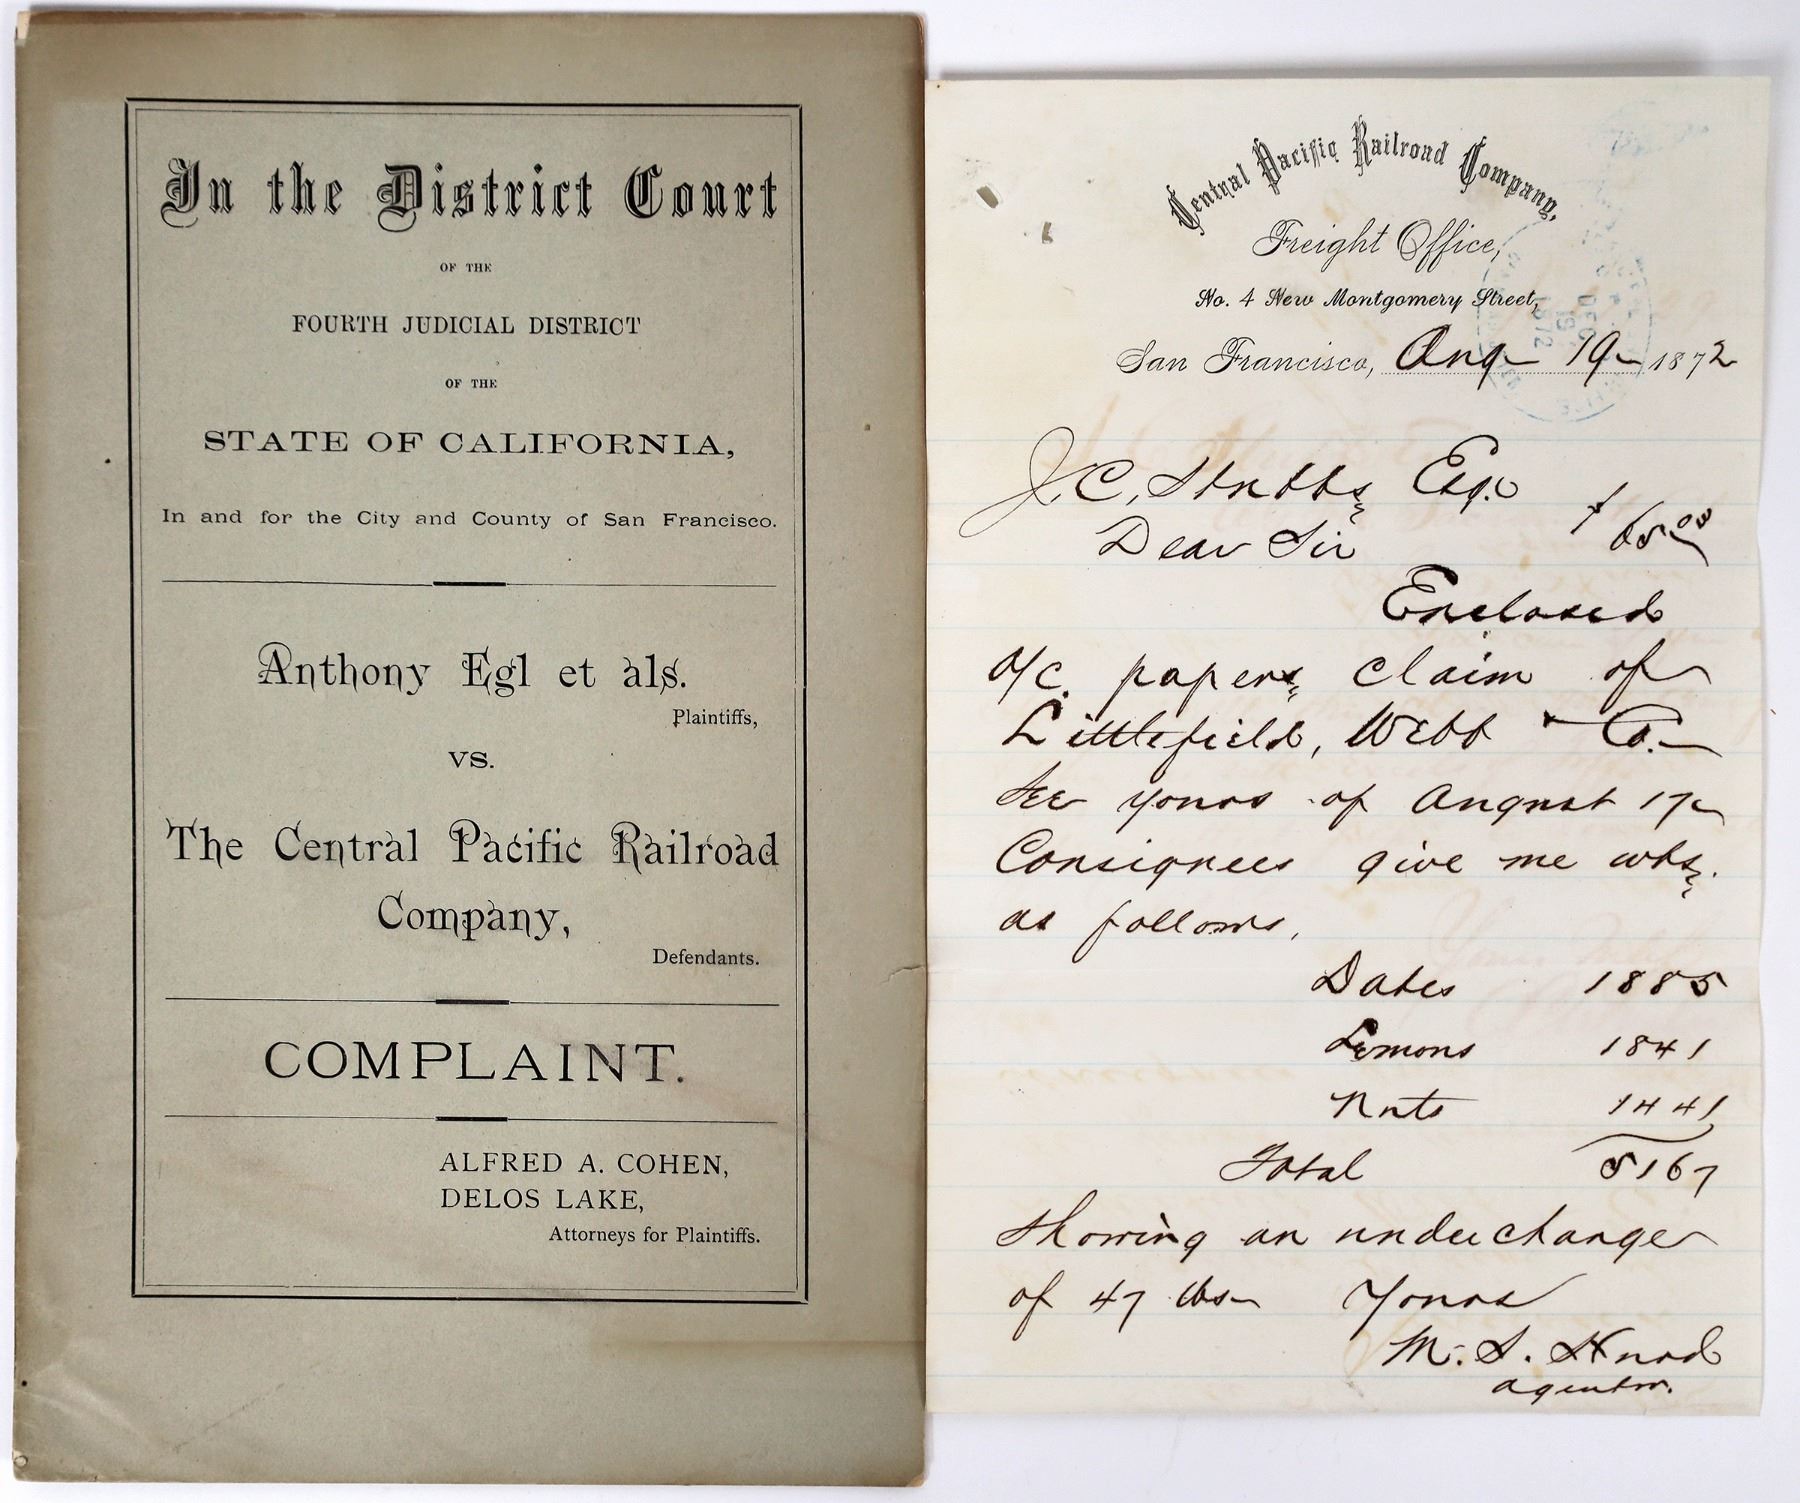 In the District Court
OF THE
FOURTH JUDICIAL DISTRICT
OF THE
STATE OF CALIFORNIA,
In and for the City and County of San Francisco.
Anthony Egl et als.
Plaintiffs,
VS.
The Central Pacific Railroad
Company,
Defendants.
COMPLAINT.
ALFRED A. COHEN,
DELOS LAKE,
Attorneys for Plaintiffs.
Central Pacific Railroad Company,
Freight Office,
No. 4 New Montgomery Street,
San Francisco, Aug 19 1872
DEC
19
1872
J. C. Stubbs, Esq.
Dear Sir
65.00
Enclosed
o/c. papers, claim of
Littlefield, Webb & Co.
See yours of August 17
Consignees give me wts.
as follows,
Dates 1885
Lemons 1841
Nuts 1441
Total 5167
showing an undercharge
of 47 lbs Yours
M. S.